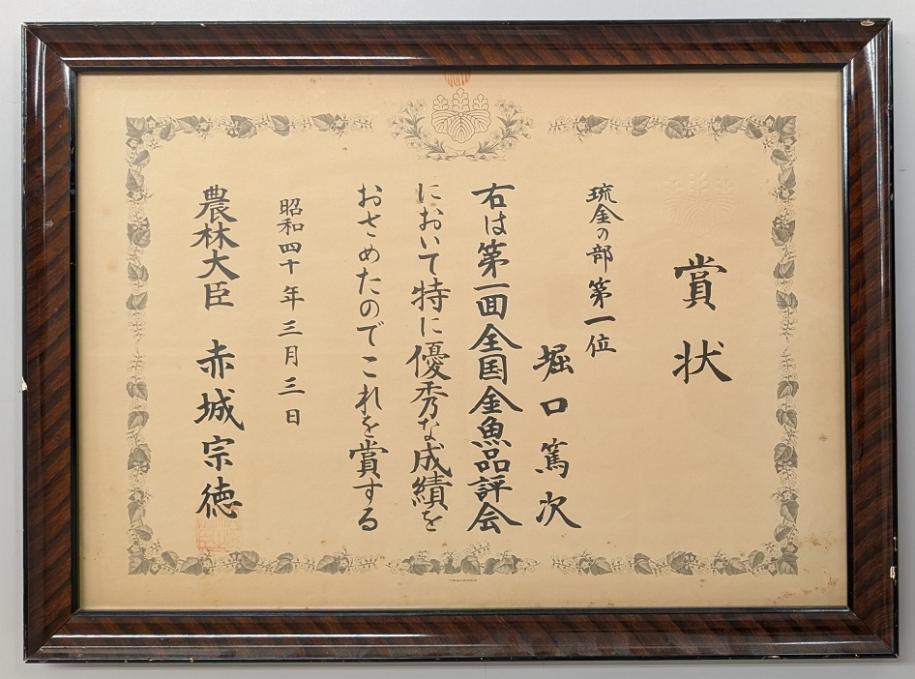 賞状
琉金の部 第一位
堀口篤次
右は第一回全国金魚品評会
において特に優秀な成績を
おさめたのでこれを賞する
昭和四十年三月三日
農林大臣 赤城宗徳